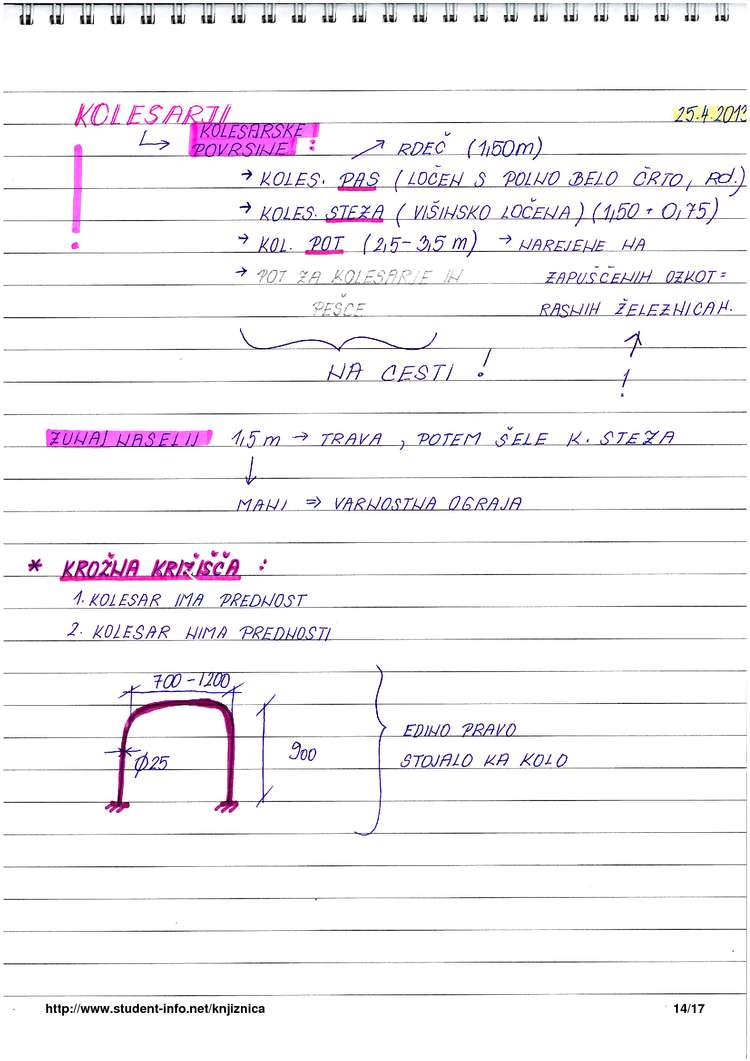 KOLESARJI
25.4.2013
↳ KOLESARSKE POVRŠINE :
↗ RDEČ (1,50m)
→ KOLES. PAS (LOČEN S POLNO BELO ČRTO, RD.)
→ KOLES. STEZA (VIŠINSKO LOČENA) (1,50 + 0,75)
→ KOL. POT (2,5-3,5 m) → NAREJENE NA
→ POT ZA KOLESARJE IN ZAPUŠČENIH OZKOT=
PEŠCE RASNIH ŽELEZNICAH.
NA CESTI !
!
ZUNAJ NASELIJ 1,5 m → TRAVA, POTEM ŠELE K. STEZA
MANJ ⇒ VARNOSTNA OGRAJA
* KROŽNA KRIŽIŠČA :
1. KOLESAR IMA PREDNOST
2. KOLESAR NIMA PREDNOSTI
700-1200
EDINO PRAVO
900
STOJALO KA KOLO
Ø25
http://www.student-info.net/knjiznica 14/17